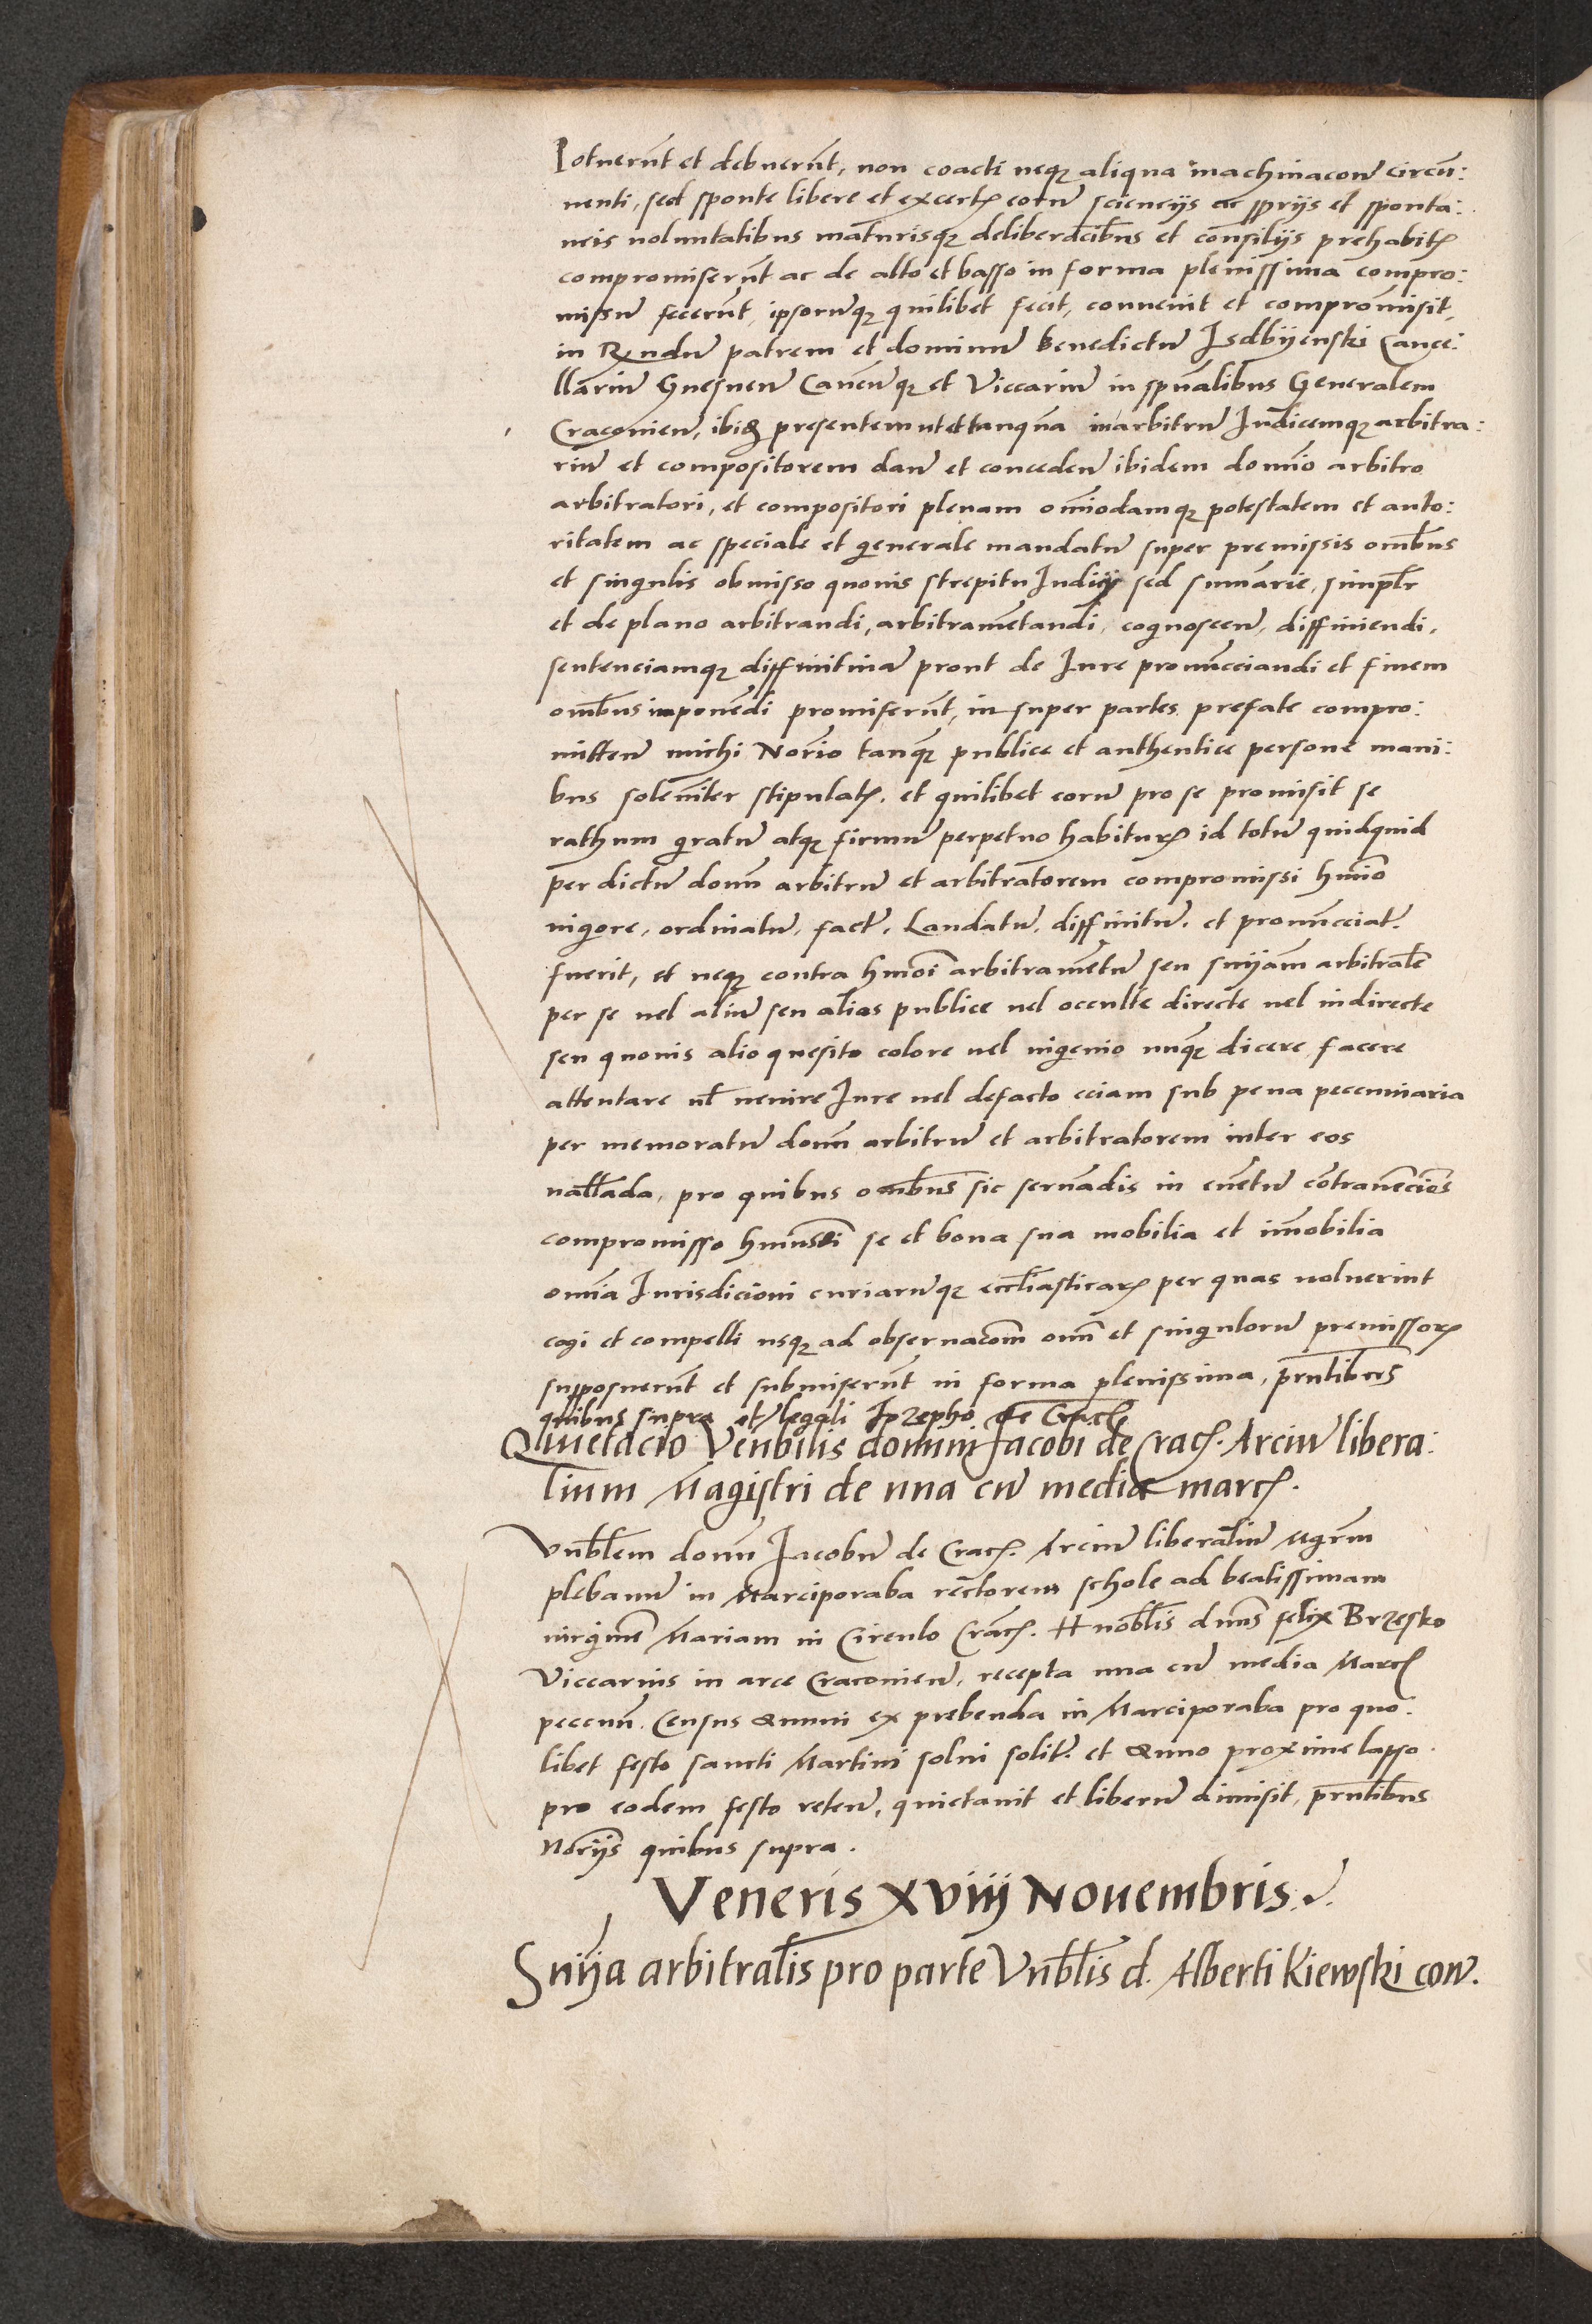 Potuerūt et debuerūt, non coacti neqꝫ aliqua machinacoē circū:
uenti, sed sponte libere et ex certꝭ eorū sciencijs ac ꝓprijs et sponta:
neis uoluntatibus maturisqꝫ deliberacībus et consilijs prehabitꝭ
compromiserūt ac de alto et basso in forma plenissima compro:
missū fecerūt, ipsorūqꝫ quilibet fecit, conuenit et compromisit,
in Rndū patrem et dominū Benedictū Isdbijenski Cance:
llariū Gnesneñ Canēūqꝫ et Viccariū in spūalibus Generalem
Cracovieñ, ibidꝫ presentem ut et tanquā in arbitrū Iudicemqꝫ arbitra:
riū et compositorem dañ et concedeñ ibidem domīo arbitro
arbitratori, et compositori plenam omīodamqꝫ potestatem et auto:
ritatem ac speciale et generale mandatū super premissis omībus
et singulis obmisso quouis strepitu Iudicij sed sumarie, simplr̄
et de plano arbitrandi, arbitramētandi, cognosceñ, diffiniendi,
sentenciamqꝫ diffinitiuā prout de Iure pronūcciandi et finem
omībus imponēdi promiserūt, in super partes prefate compro:
mitteñ michi Norio tanqꝫ publice et authentice persone mani:
bus soleniter stipulatꝭ. et quilibet eorū pro se promisit se
rathum gratū atqꝫ firmū perpetuo habiturꝭ id totū quidquid
per dictū domī arbitrū et arbitratorem compromissi hmōi
uigore, ordinatū, factū, Laudatū, diffinitū. et pronūcciatū
fuerit, et neqꝫ contra hmōi arbitramētū seu snijam arbitralē
per se uel aliū seu alios publice uel occulte directe uel indirecte
seu quouis alio quesito colore uel ingenio unqꝫ dicere facere
attentare ul̄ uenire Iure uel defacto eciam sub pena peccuniaria
per memoratū domī arbitrū et arbitratorem inter eos
uallāda, pro quibus omībus sic seruādis in euētū cōtrauēcīois
compromisso hmōi se et bona sua mobilia et imobilia
omīa Iurisdicioni curiarūqꝫ eccl̄iasticarꝭ per quas uoluerint
cogi et compelli usqꝫ ad obseruacoēm omī et singulorū premissorꝭ
supposuerūt et submiserūt in forma plenissima, pr̄ntibus
quibus supra et legali Iozepho de Cracꝭ
Quietacio Ven̄bilis domini Jacobi de Cracꝭ. Arciū libera:
lium Magistri de una cū media marcꝭ.
Vnb̄lem domī Jacobū de Cracꝭ. Arciū liberaliū Mgr̄m
plebanū in Marciporaba rectorem schole ad beatissimam
uirginē Mariam in Circulo Cracꝭ. Hnob̄lis dnūs felix Brzesko
Viccarius in arce Cracovieñ, recepta una cū media Marcꝭ
peccuñ. Census annui ex prebenda in Marciporaba pro quo:
libet festo sancti Martini solui solitꝭ. et Anno proxime lapso.
pro eodem festo reteñ, quietauit et liberū dimisit, pr̄ntibus
Norijs quibus supra.
Veneris XViij Nouembris.
Snīja arbitralis pro parte Vnb̄lis d. Alberti Kiewski coñ.